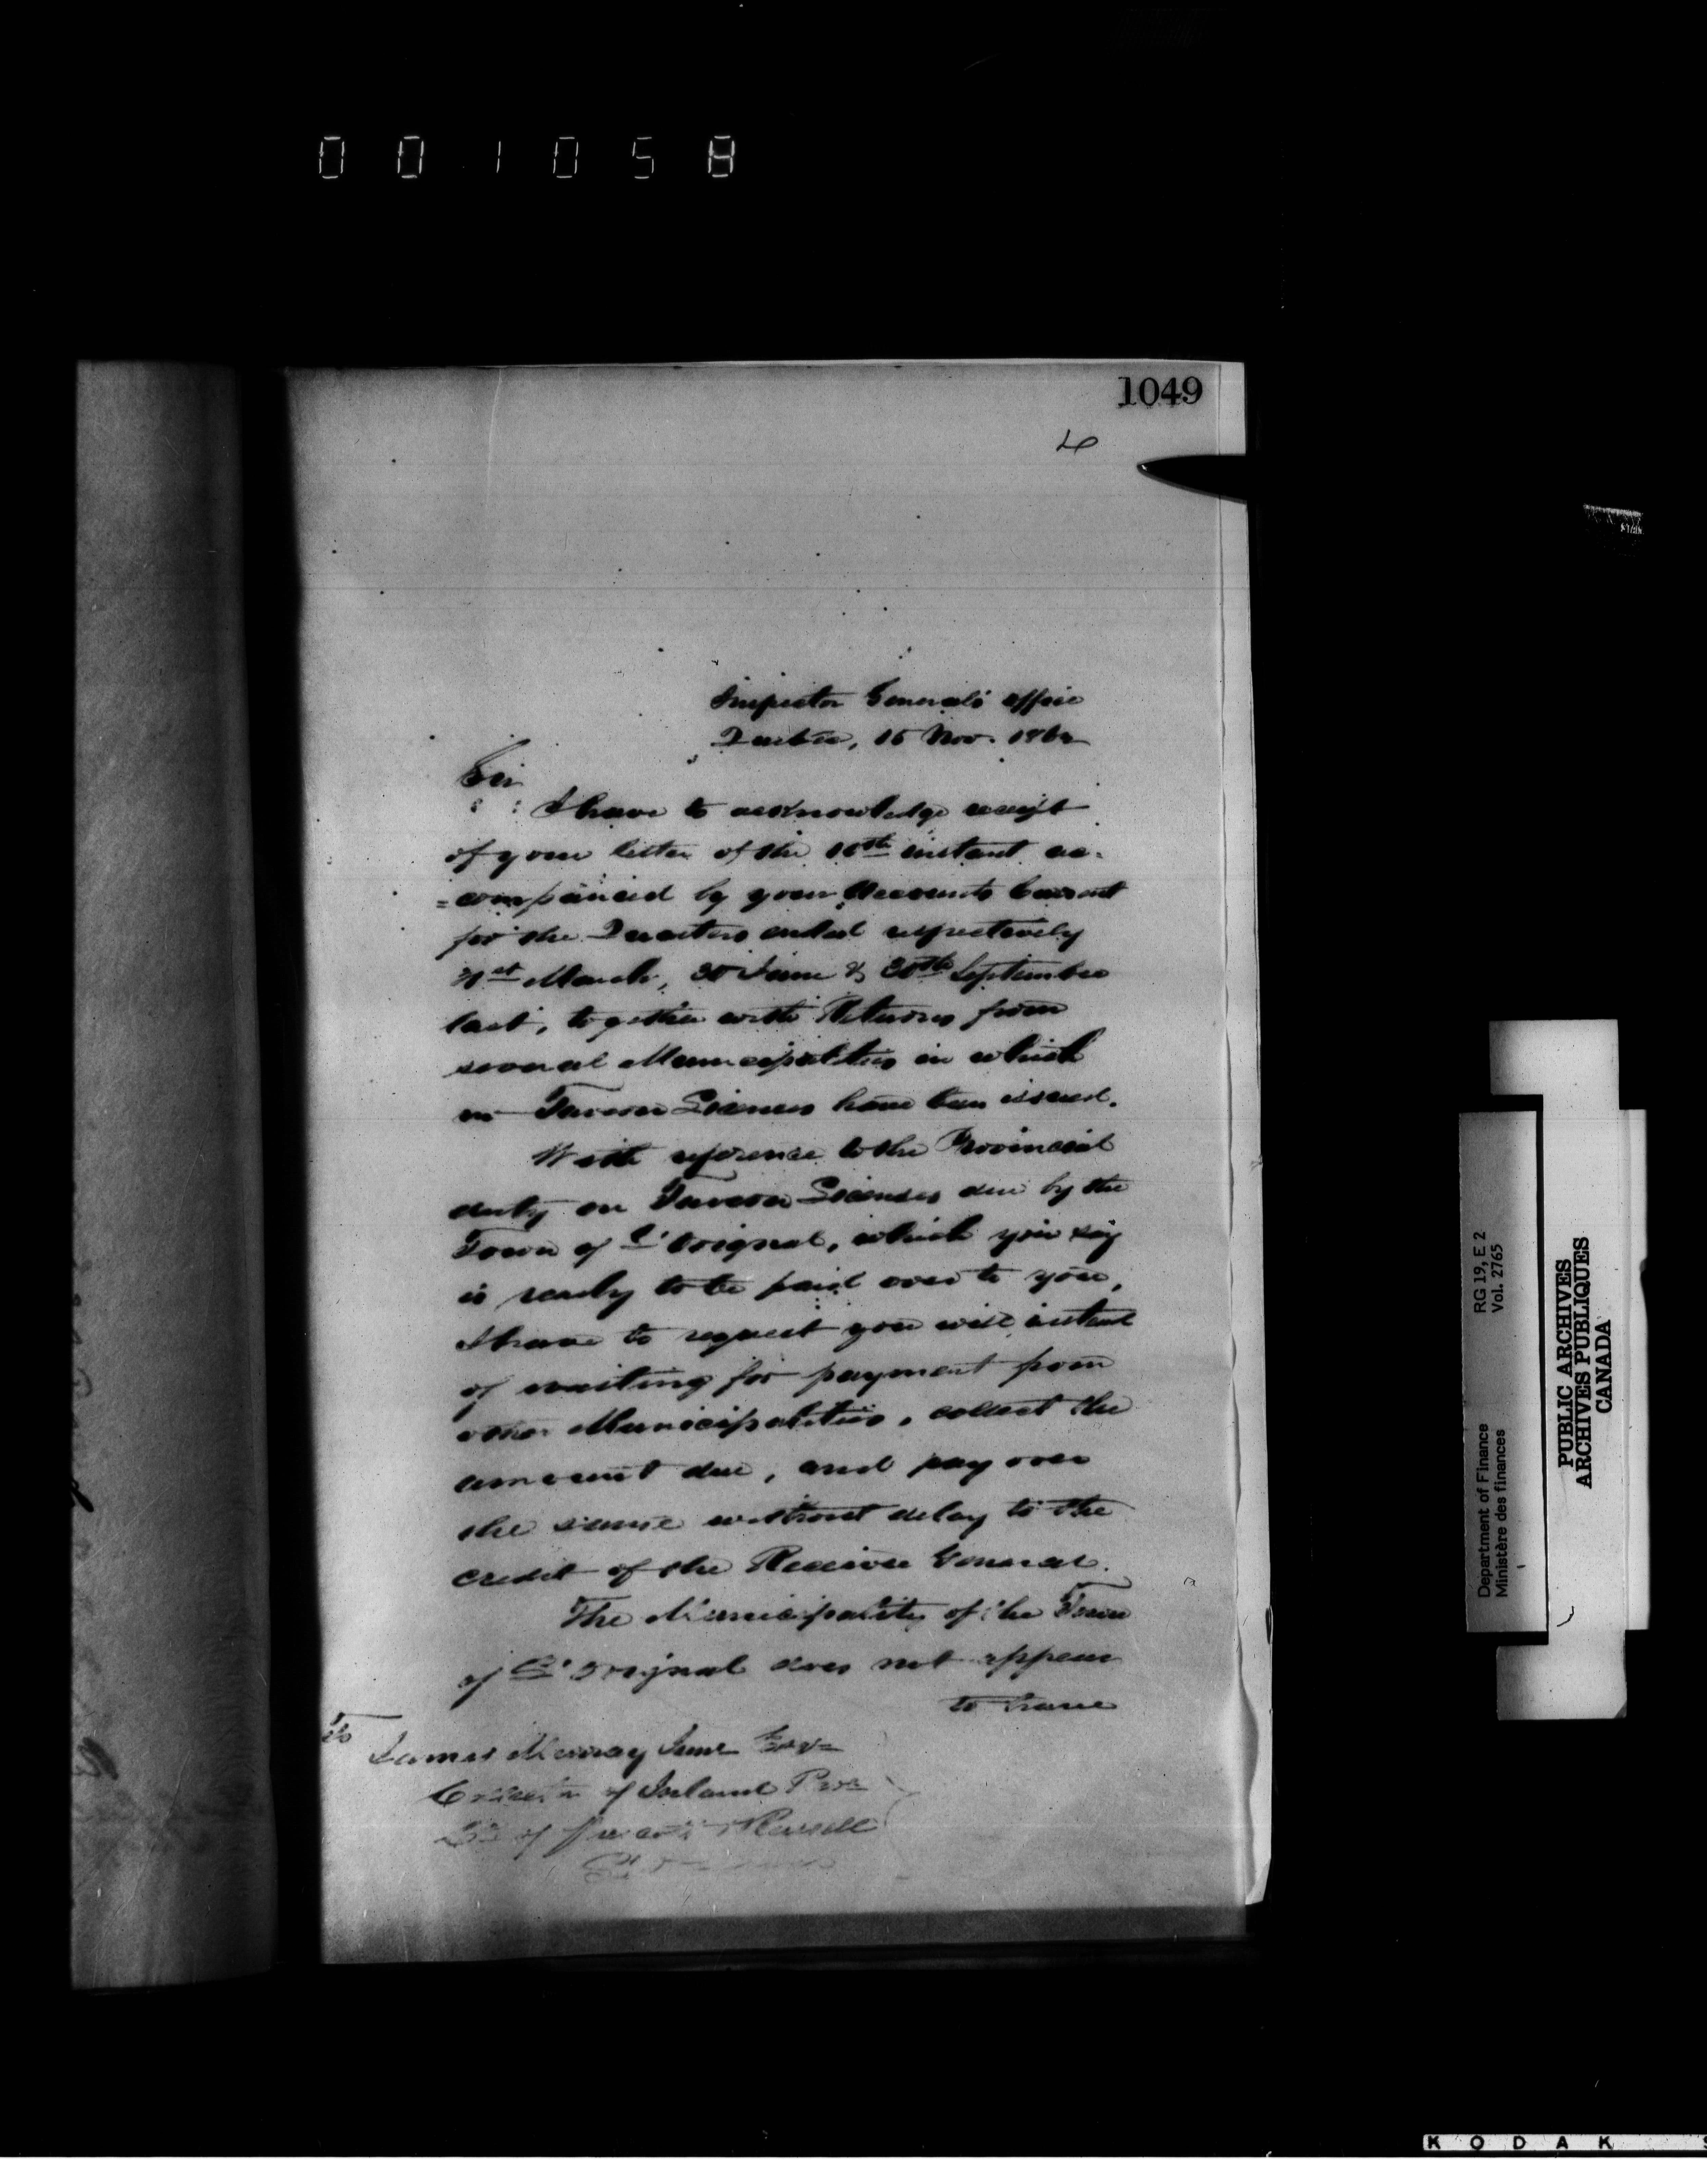 001058
1049
Inspector General's Office
Quebec, 15 Nov. 186
Sir
I have to acknowledge receipt
of your letter of the 10th instant ac-
=companied by your Accounts Current
for the Quarters ended respectively
31st March, 30 June & 30th September
last, together with Returns from
several Municipalities in which
no Tavern Licenses have been issued.
With reference to the Provincial
duty on Tavern Licenses due by the
Town of L'Orignal, which you say
is ready to be paid over to you,
I have to request you will instead
of waiting for payment from
other Municipalities, collect the
amount due, and pay over
the same without delay to the
credit of the Receiver General.
The Municipality of the Town
of L'Orignal does not appear
to have
To
James Murray Junr Esqr
Collector of Inland Rev
of Prescott & Russell
RG 19, E 2
Vol. 2765
Department of Finance
Ministère des finances
PUBLIC ARCHIVES
ARCHIVES PUBLIQUES
CANADA
KODAK